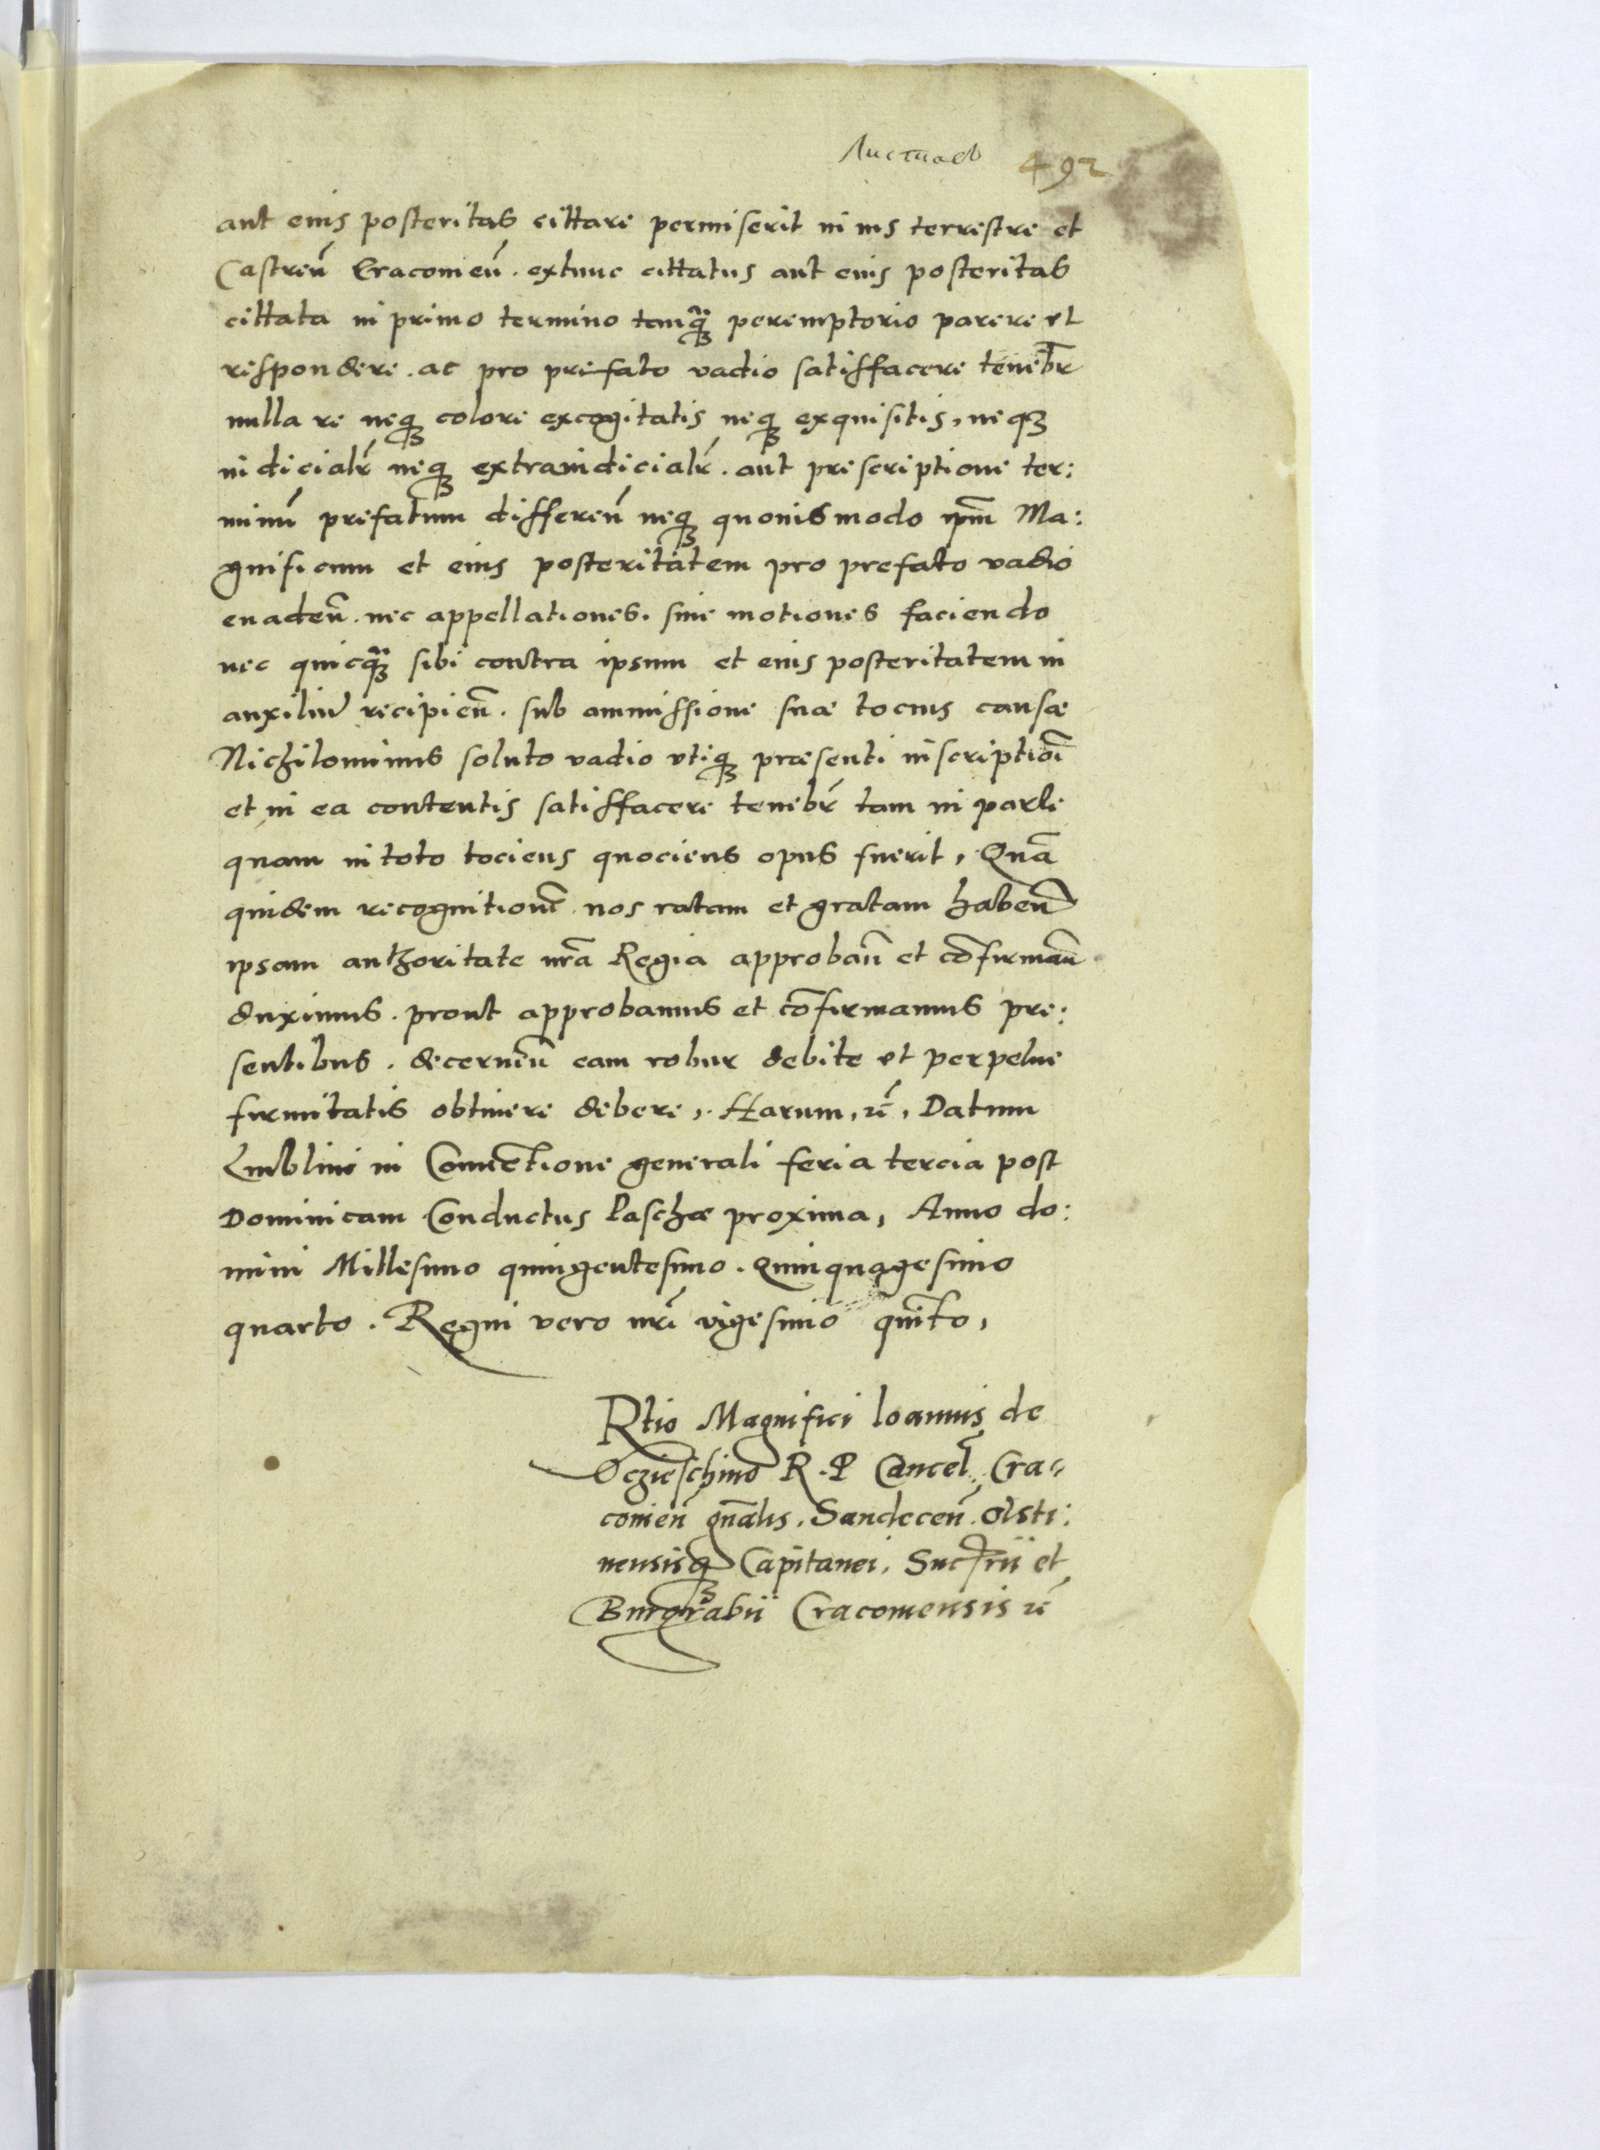 Листаєв 492
aut eius posteritas cittare permiserit in ius terrestre et
Castreñ Cracovieñ. extunc cittatus aut eius posteritas
cittata in primo termino tamq̃ȝ peremptorio parere et
respondere. ac pro prefato vadio satisffacere tenebr̃
nulla re neqȝ colore excogitatis neqȝ exquisitis, neqȝ
iudicialr̃ neqȝ extraiudicialr̃. aut prescriptione ter:
minũ prefatum differeñ neqȝ quovismodo ip̃m Ma:
gnificum et eius posteritatem pro prefato vadio
evadeñ. nec appellationes. sive motiones faciendo
nec quicq̃ȝ sibi contra ipsum et eius posteritatem in
auxiliũ recipieñ. sub ammissione suæ tocius causæ
Nichilominus soluto vadio utiqȝ præsenti inscriptiõi
et in ea contentis satisffacere tenebr̃ tam in parte
quam in toto tociens quociens opus fuerit, Quã
quidem recognitionẽ nos ratam et gratam habeñ
ipsam authoritate nr̃a Regia approbañ et cõfirmañ
duximus. prout approbamus et cõfirmamus pre:
sentibus. decerneñ eam robur debite et perpetue
firmitatis obtinere debere, Harum, rc̃, Datum
Lublini in Conventione generali feria tercia post
Dominicam Conductus Paschæ proxima, Anno do:
mini Millesimo quingentesimo. Quinquagesimo
quarto. Regni vero nr̃i vigesimo quinto,
Rtio Magnifici Ioannis de
Oczieschino R. P Cancel̃, Cra,
covieñ gñalis. Sandeceñ. Olsti:
nensisqȝ Capitanei. Succ̃rii et
Burgrabii Cracoviensis rc̃